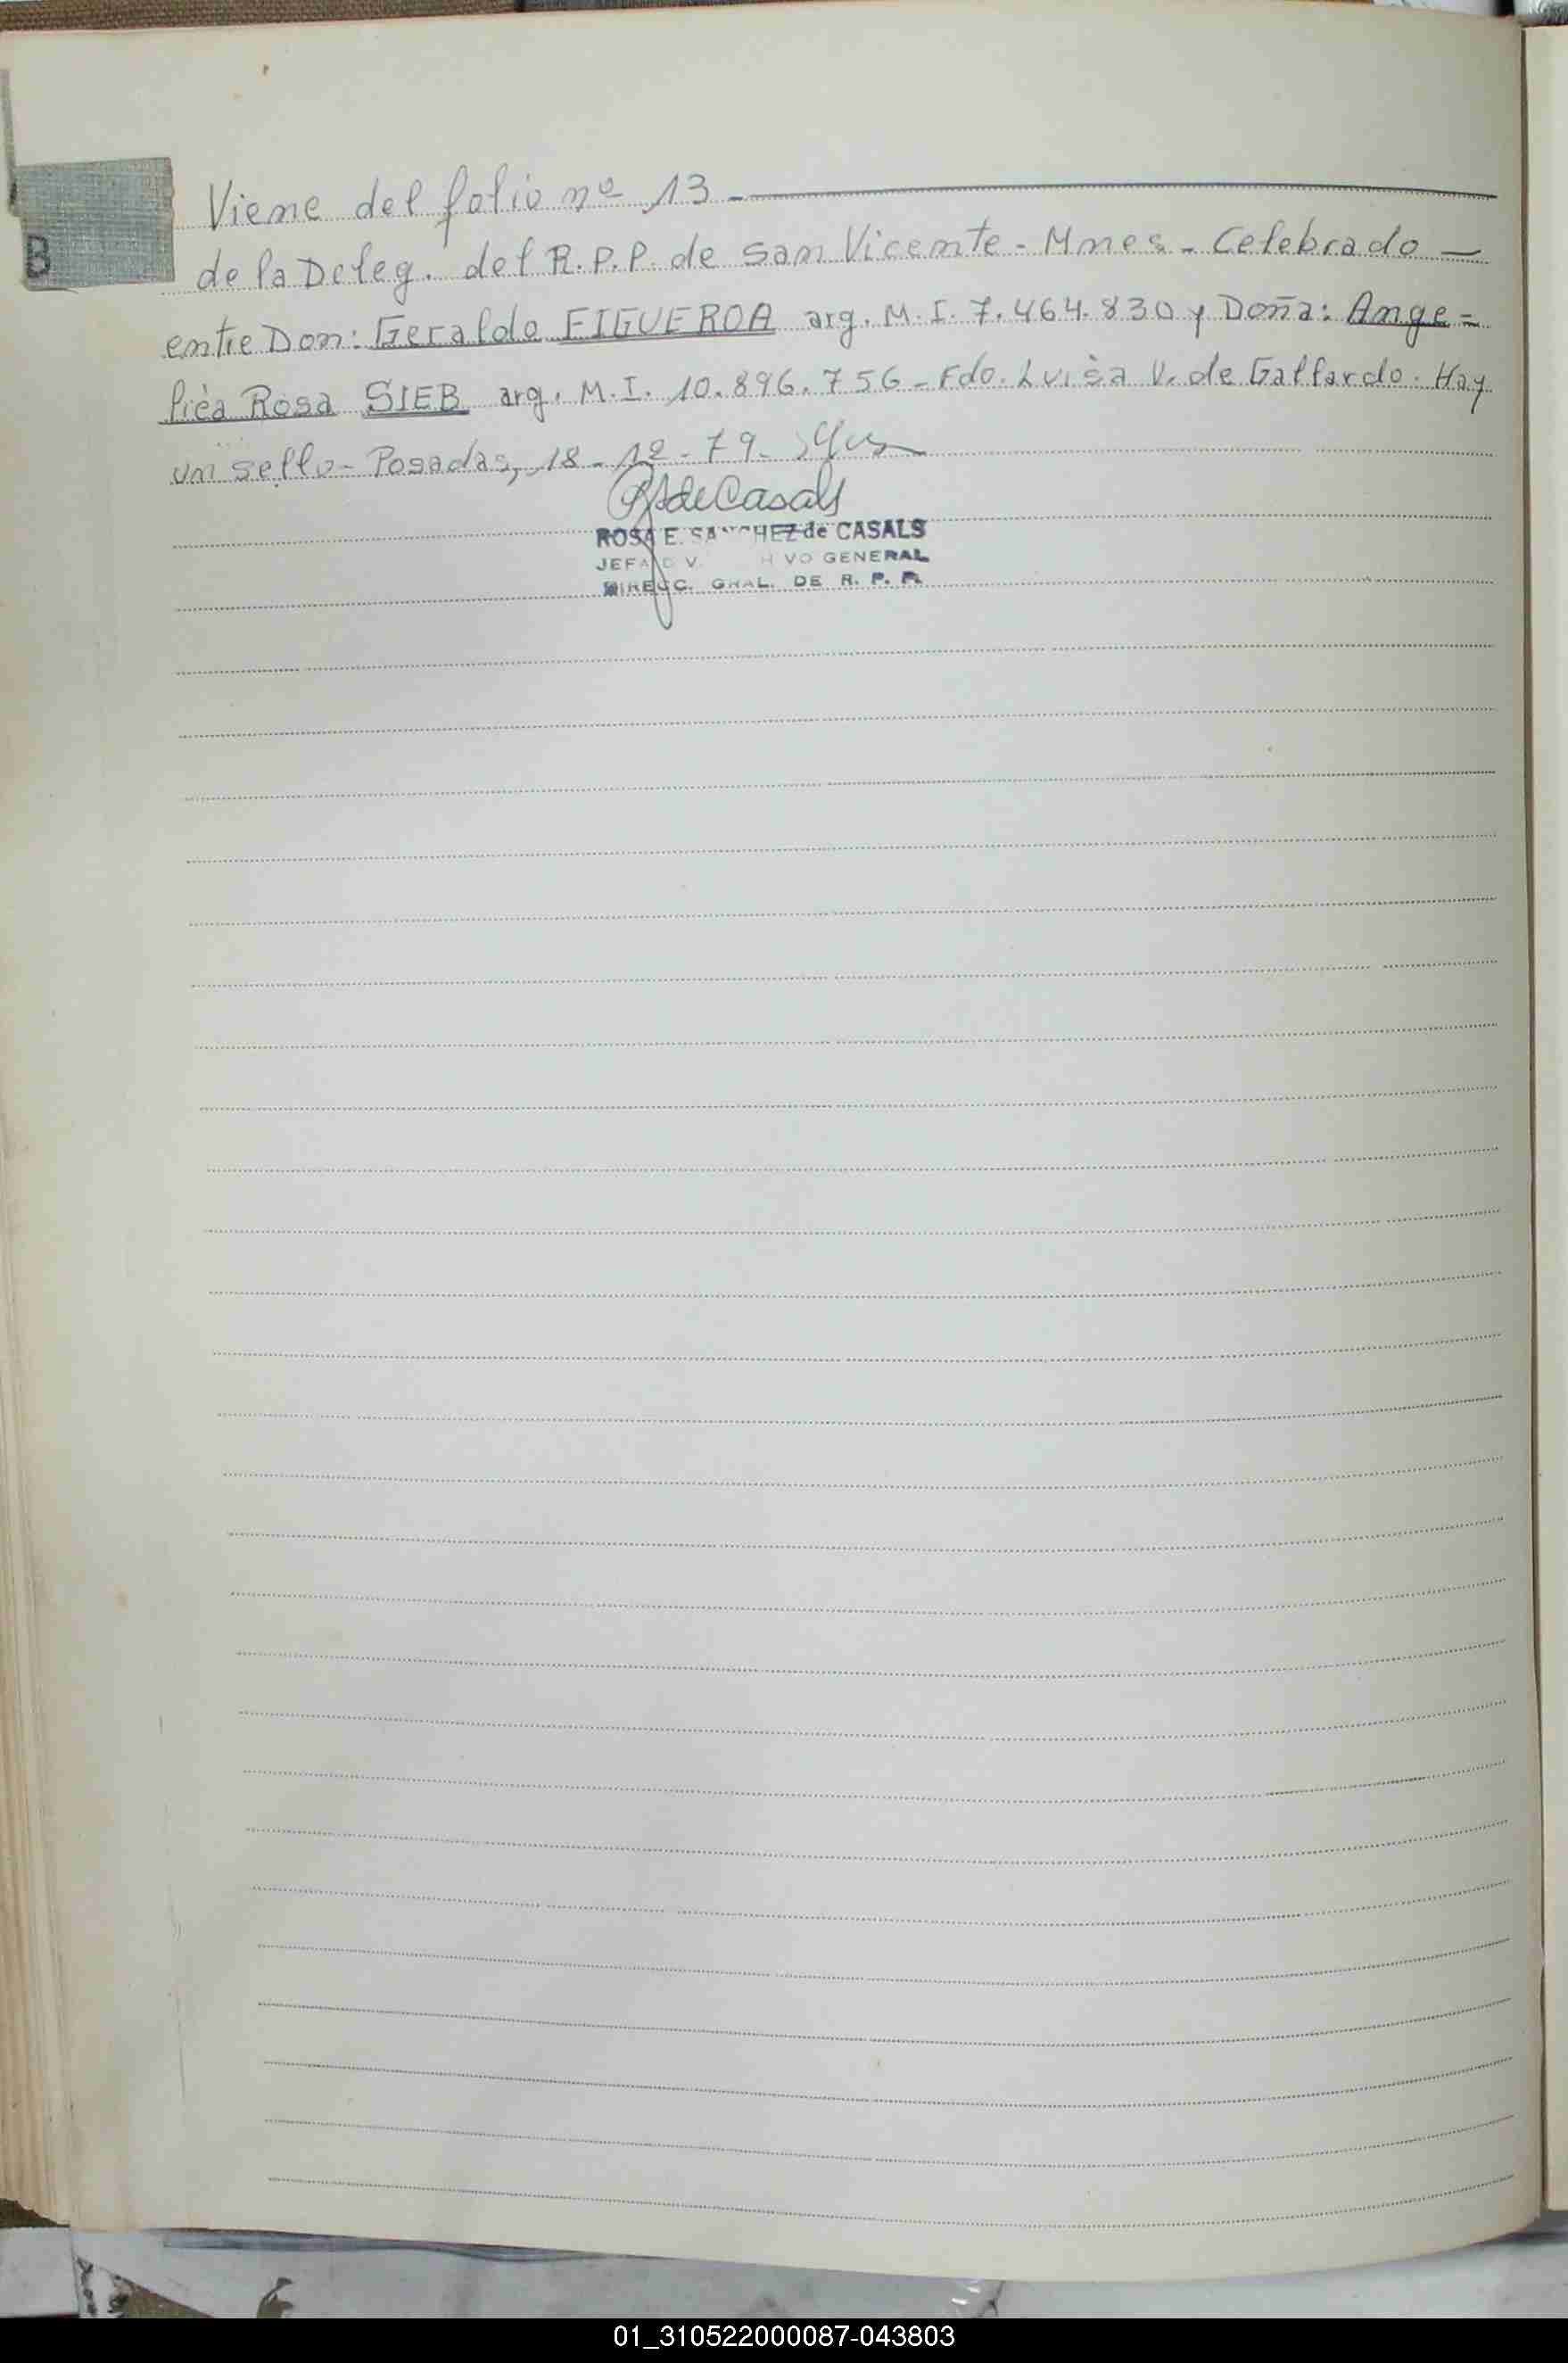 B
Viene del folio nº 13 -
de la Deleg. del R.P.P. de san Vicente - Mnes - Celebrado —
entre Don: Geraldo FIGUEROA arg. M.I. 7.464.830 y Doña: Ange=
lica Rosa SIEB arg. M.I. 10.896.756 - Fdo. Luisa V. de Gallardo. Hay
un sello - Posadas, 18 - 12 - 79.
RSdeCasals
ROSA E. SANCHEZ de CASALS
JEFA VO GENERAL
DIRECC. GRAL. DE R. P. P.
01_310522000087-043803